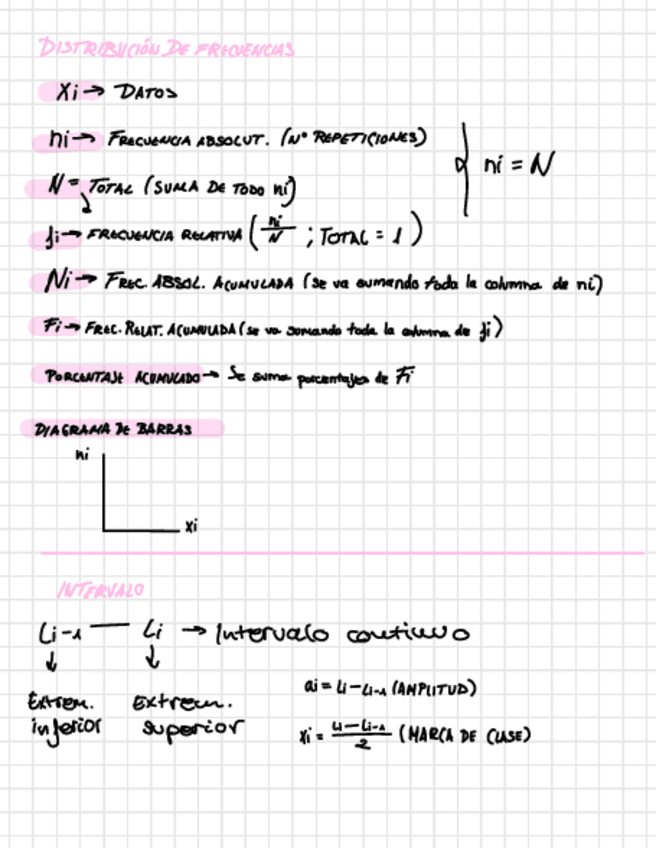 DISTRIBUCIÓN DE FRECUENCIAS
Xi → DATOS
ni → FRECUENCIA ABSOLUT. (Nº REPETICIONES)
ni = N
N = TOTAL (SUMA DE TODO ni)
fi → FRECUENCIA RELATIVA (ni/N ; TOTAL = 1)
Ni → FREC. ABSOL. ACUMULADA (se va sumando toda la columna de ni)
Fi → FREC. RELAT. ACUMULADA (se va sumando toda la columna de fi)
PORCENTAJE ACUMULADO → Se suma porcentajes de Fi
DIAGRAMA DE BARRAS
ni
xi
INTERVALO
Li-1 — Li → Intervalo continuo
Extrem. inferior
Extrem. superior
ai = Li - Li-1 (AMPLITUD)
xi = Li - Li-1 / 2 (MARCA DE CLASE)